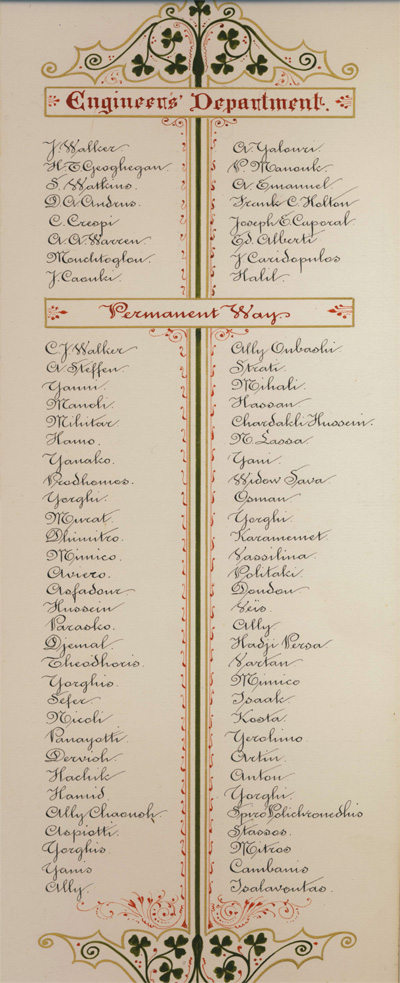 Engineers' Department.
J. Walker
H. T. Geoghegan
S. Watkins
D. A. Andrus
C. Crespi
A. A. Warren
Mouchtoglou
J. Caouki
A. Yalouri
P. Manouk
A. Emanuel
Frank C. Holton
Joseph E. Caporal
Ed. Alberti
J. Caridopulos
Halil
Permanent Way
C. J. Walker
A. Steffen
Yanni
Manoli
Militar
Hamo.
Yanako.
Prodhomos.
Yorghi
Murat
Dhimitro.
Mimico.
Aviero.
Asfadour
Hussein
Parasko.
Djemal
Theodhoris.
Yorghis.
Sefer
Nicoli
Panayotti.
Dervish
Hachik
Hamid
Ally Chaoush
Aspiotti
Yorghis
Yanis
Ally
Ally Onbashi
Strati
Mihali.
Hassan
Chardakli Hussein.
N. Lassa
Yani
Widow Sava
Osman
Yorghi
Karamemet
Vassilina
Politaki
Doudou
Veis.
Ally
Hadji Persa
Vartan
Mimico
Isaak
Kosta
Yerolimo
Artin
Anton
Yorghi
Spiro Polichronedhis
Stassos
Mitros
Cambanis
Tsalavoutas.